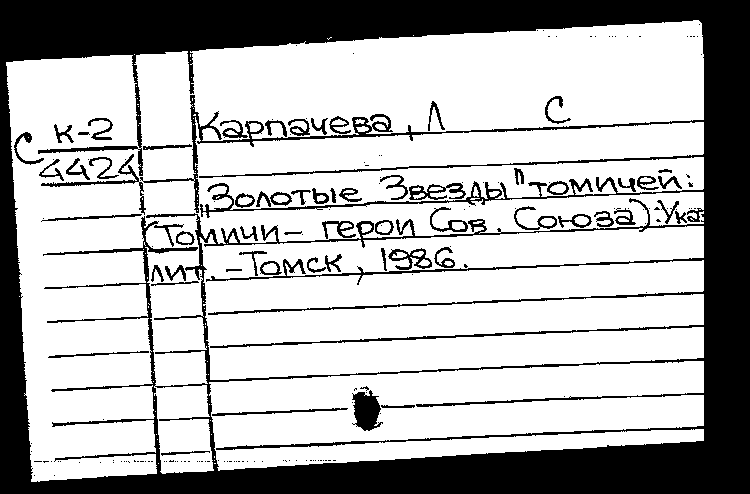 С к-2 Карпачева, Л С
4424
"Золотые Звезды" томичей:
(Томичи - герои Сов. Союза): Ука
лит. - Томск, 1986.